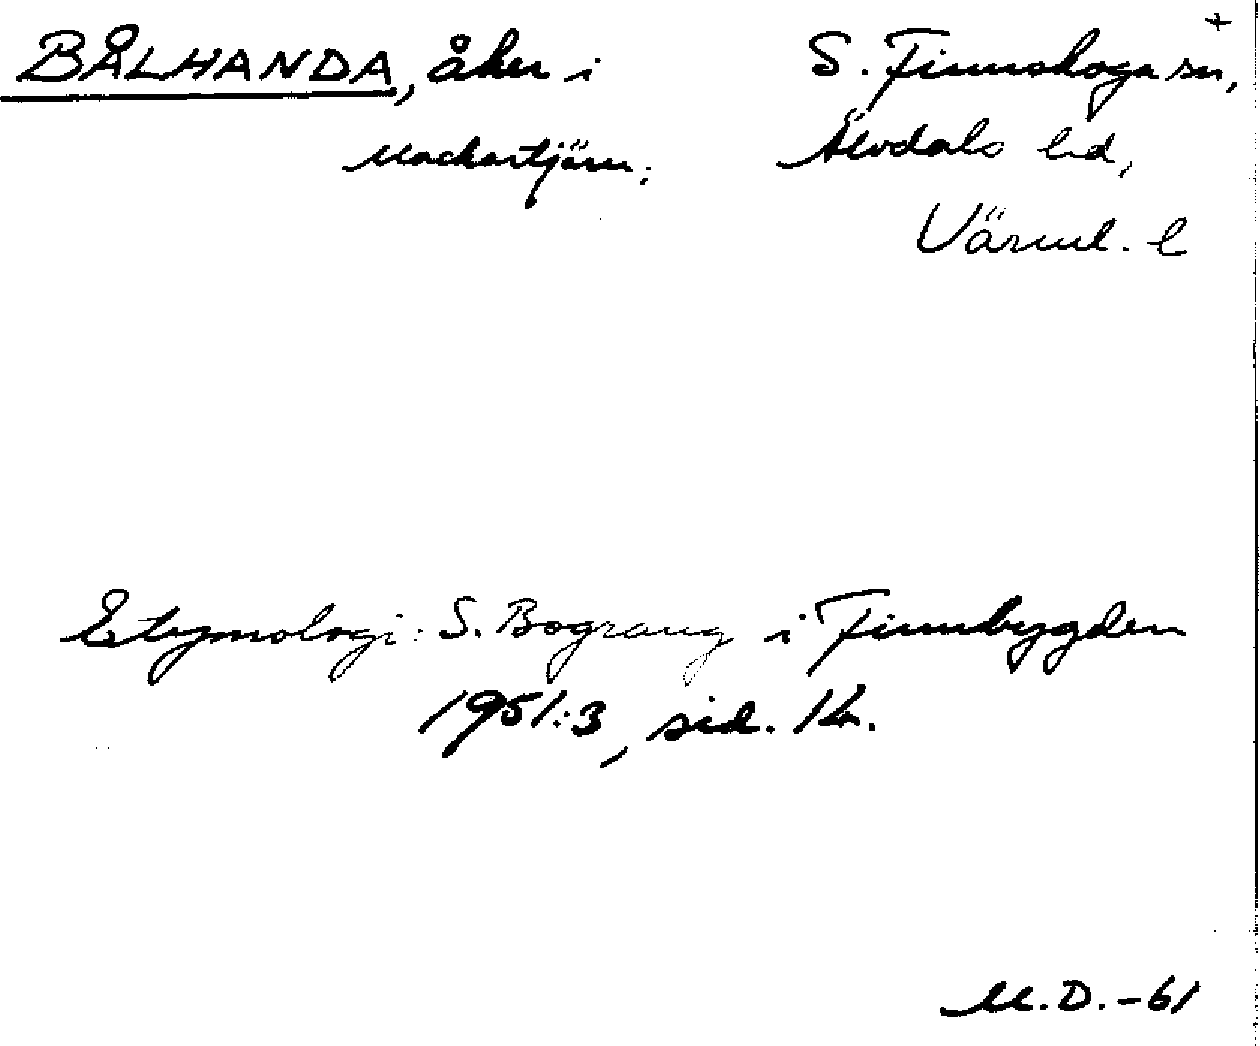 +
BÅLHANDA, åker i S. Finnskoga sn,
Mackartjärn; Älvdals hd,
Värml. l
Etymologi: S. Bograng i Finnbygden
1951:3, sid. 14.
M.D. -61